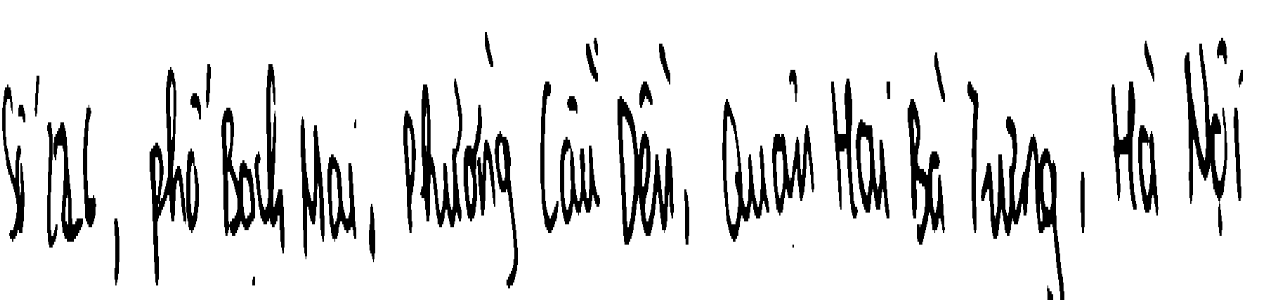 Số , phố Bạch Mai, Phường Cầu Dền, Quận Hai Bà Trưng, Hà Nội